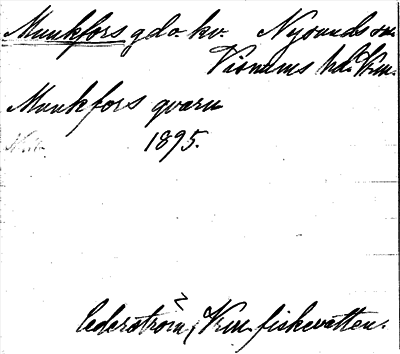 Munkfors gdo kv. Nysunds sn.
Visnums hd. Vrm.
Munkfors qvarn
1895.
Cederström, Vrm fiskevatten.